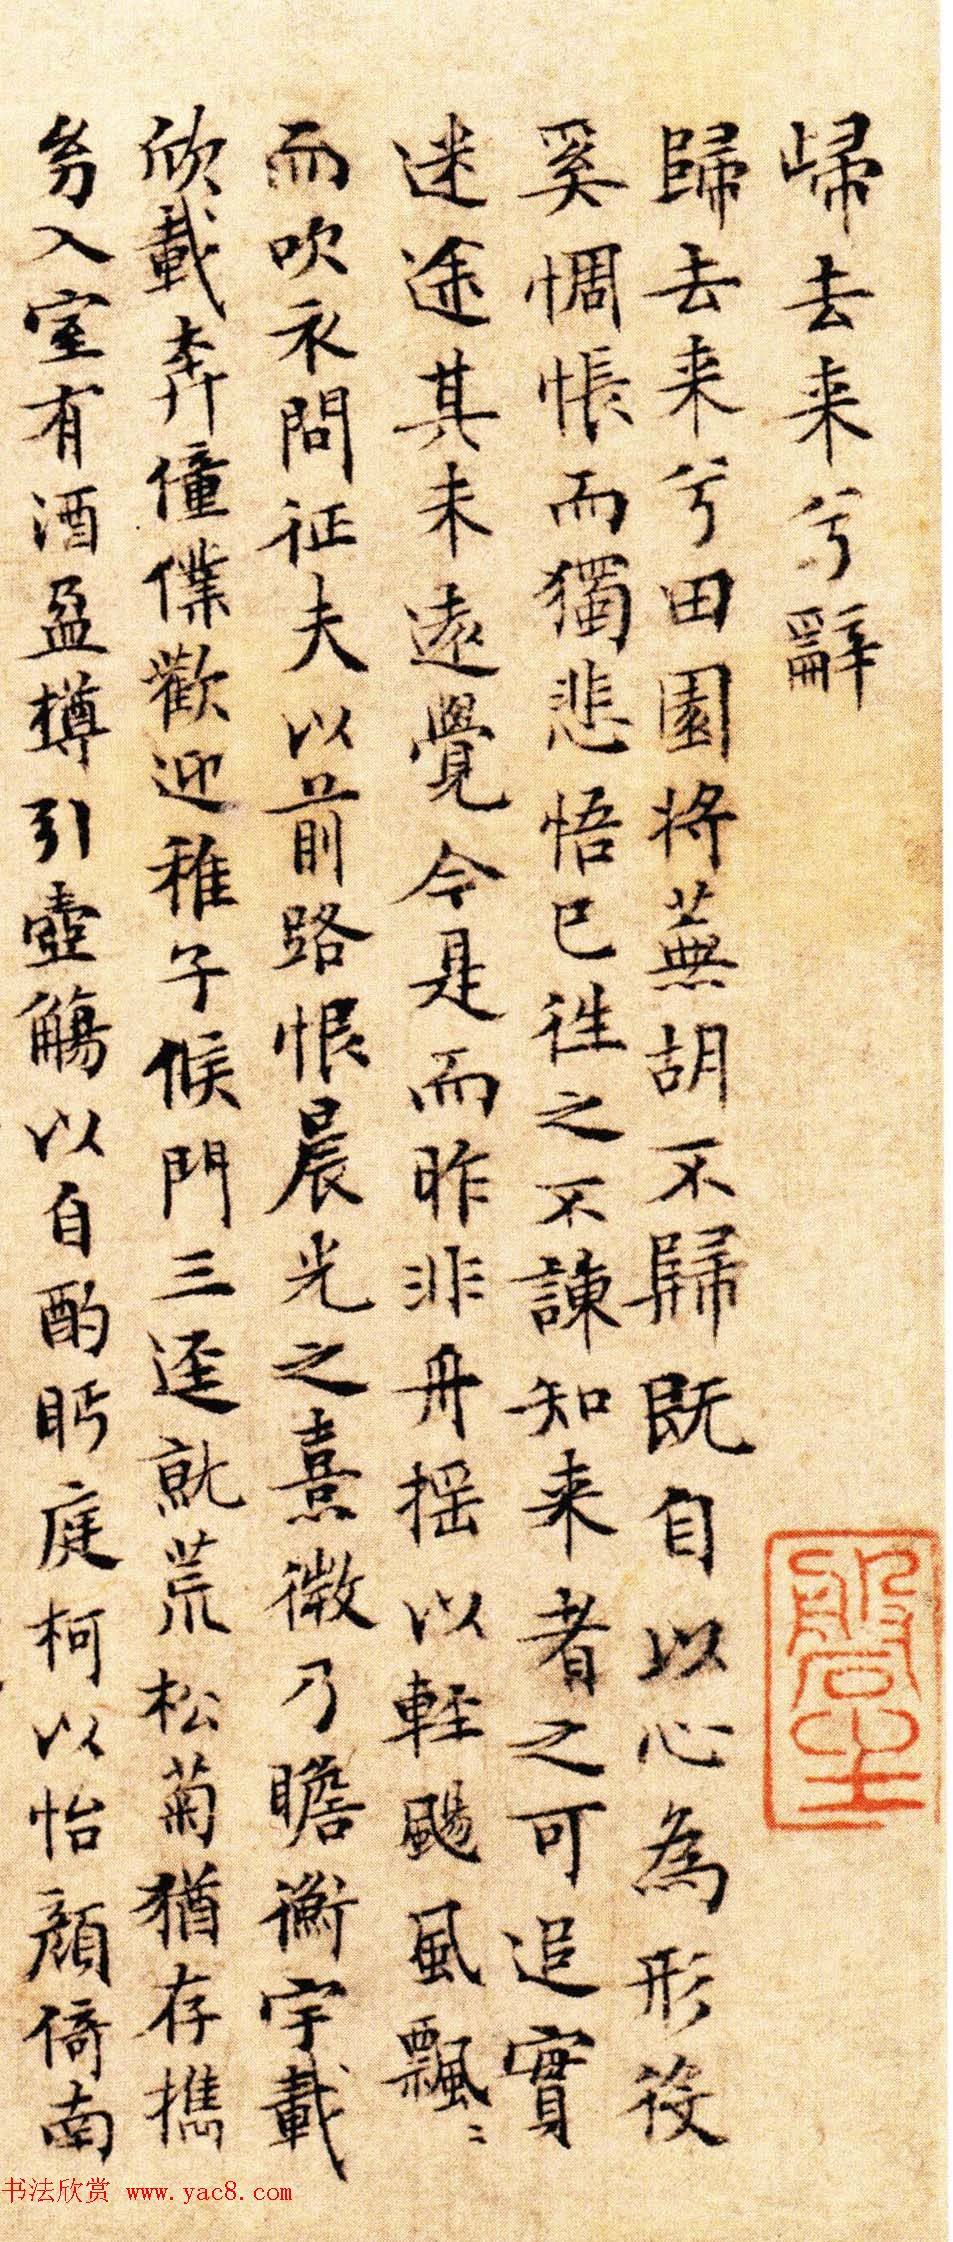 歸去来兮辭
歸去来兮田園将蕪胡不歸既自以心為形役
奚惆悵而獨悲悟已往之不諫知来者之可追實
迷途其未遠覺今是而昨非舟揺以輕颺風飄〻
而吹衣問征夫以前路恨晨光之熹微乃瞻衡宇載
欣載奔僮僕歡迎稚子候門三逕就荒松菊猶存攜
㓜入室有酒盈樽引壺觴以自酌眄庭柯以怡顔倚南
书法欣赏 www.yac8.com